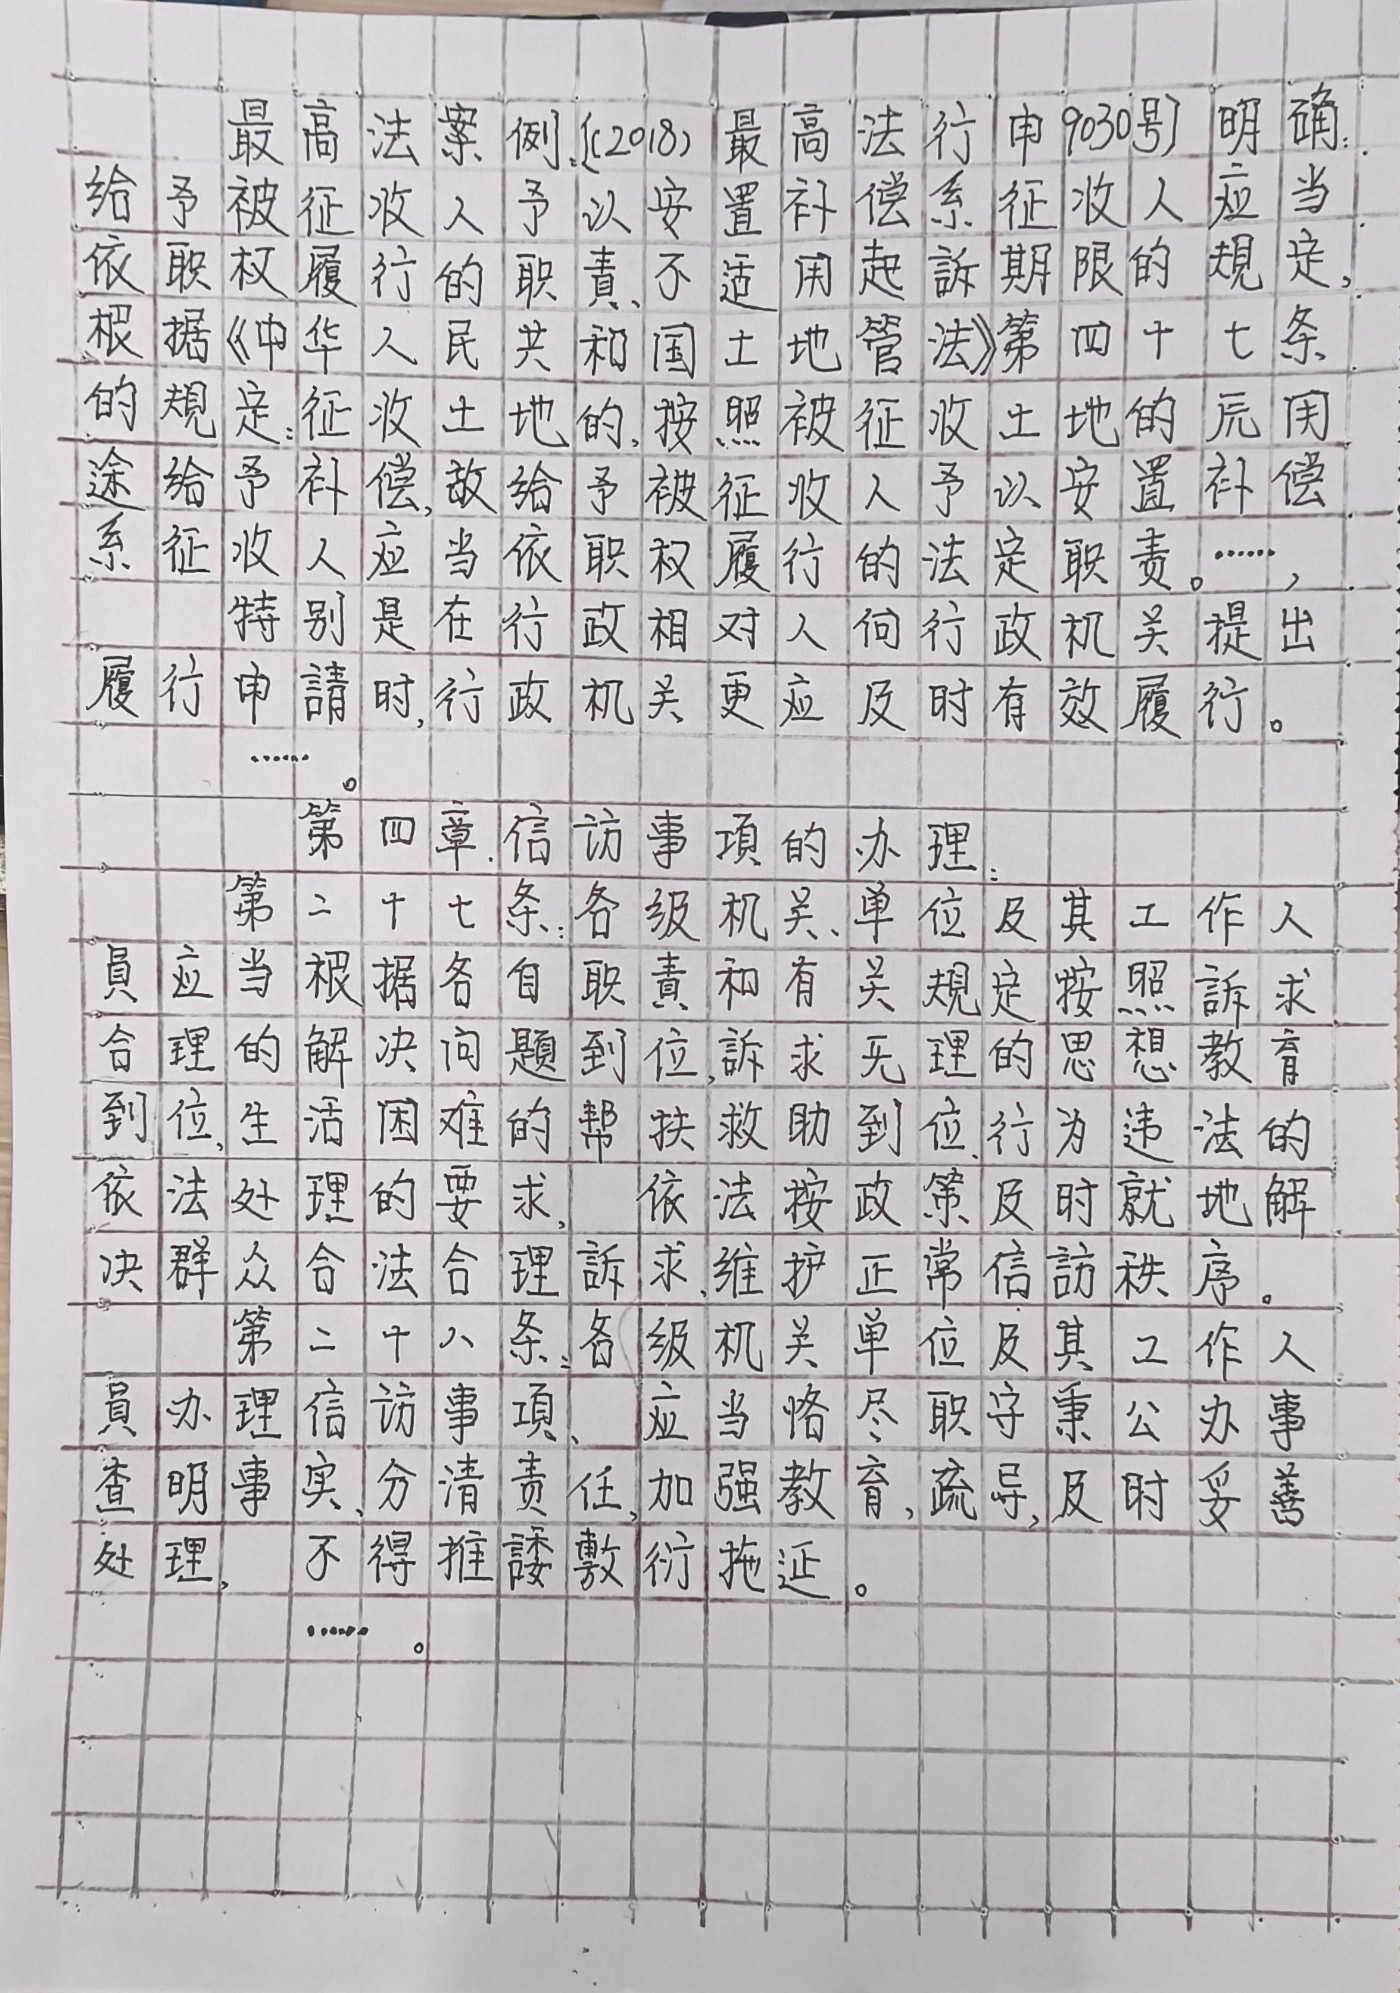 最高法案例:〔(2018)最高法行申9030号〕明确:
给予被征收人予以安置补偿系征收人应当
依职权履行的职責、不适用起訴期限的規定,
根据《中华人民共和国土地管法》第四十七条
的規定:征收土地的,按照被征收土地的原用
途给予补偿,故给予被征收人予以安置补偿
系征收人应当依职权履行的法定职责。……,
特别是在行政相对人向行政机关提出
履行申請时,行政机关更应及时有效履行。
……。
第四章.信访事項的办理:
第二十七条:各级机关、单位及其工作人
員应当根据各自职責和有关規定按照訴求
合理的解决问题到位,訴求无理的思想教育
到位,生活困难的帮扶救助到位,行为违法的
依法处理的要求, 依法按政策及时就地解
决群众合法合理訴求,维护正常信訪秩序。
第二十八条:各级机关单位及其工作人
員办理信访事項、应当恪尽职守秉公办事
查明事实,分清责任,加强教育,疏导,及时妥善
处理, 不得推諉敷衍拖延。
……。